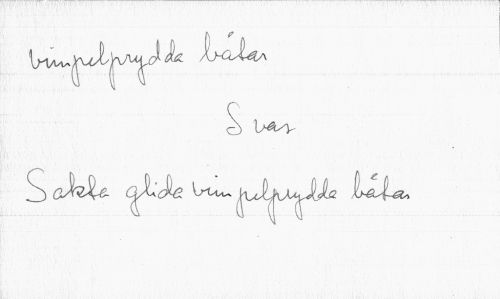 vimpelprydda båtar
Svas
Sakta glida vimpelprydda båtar